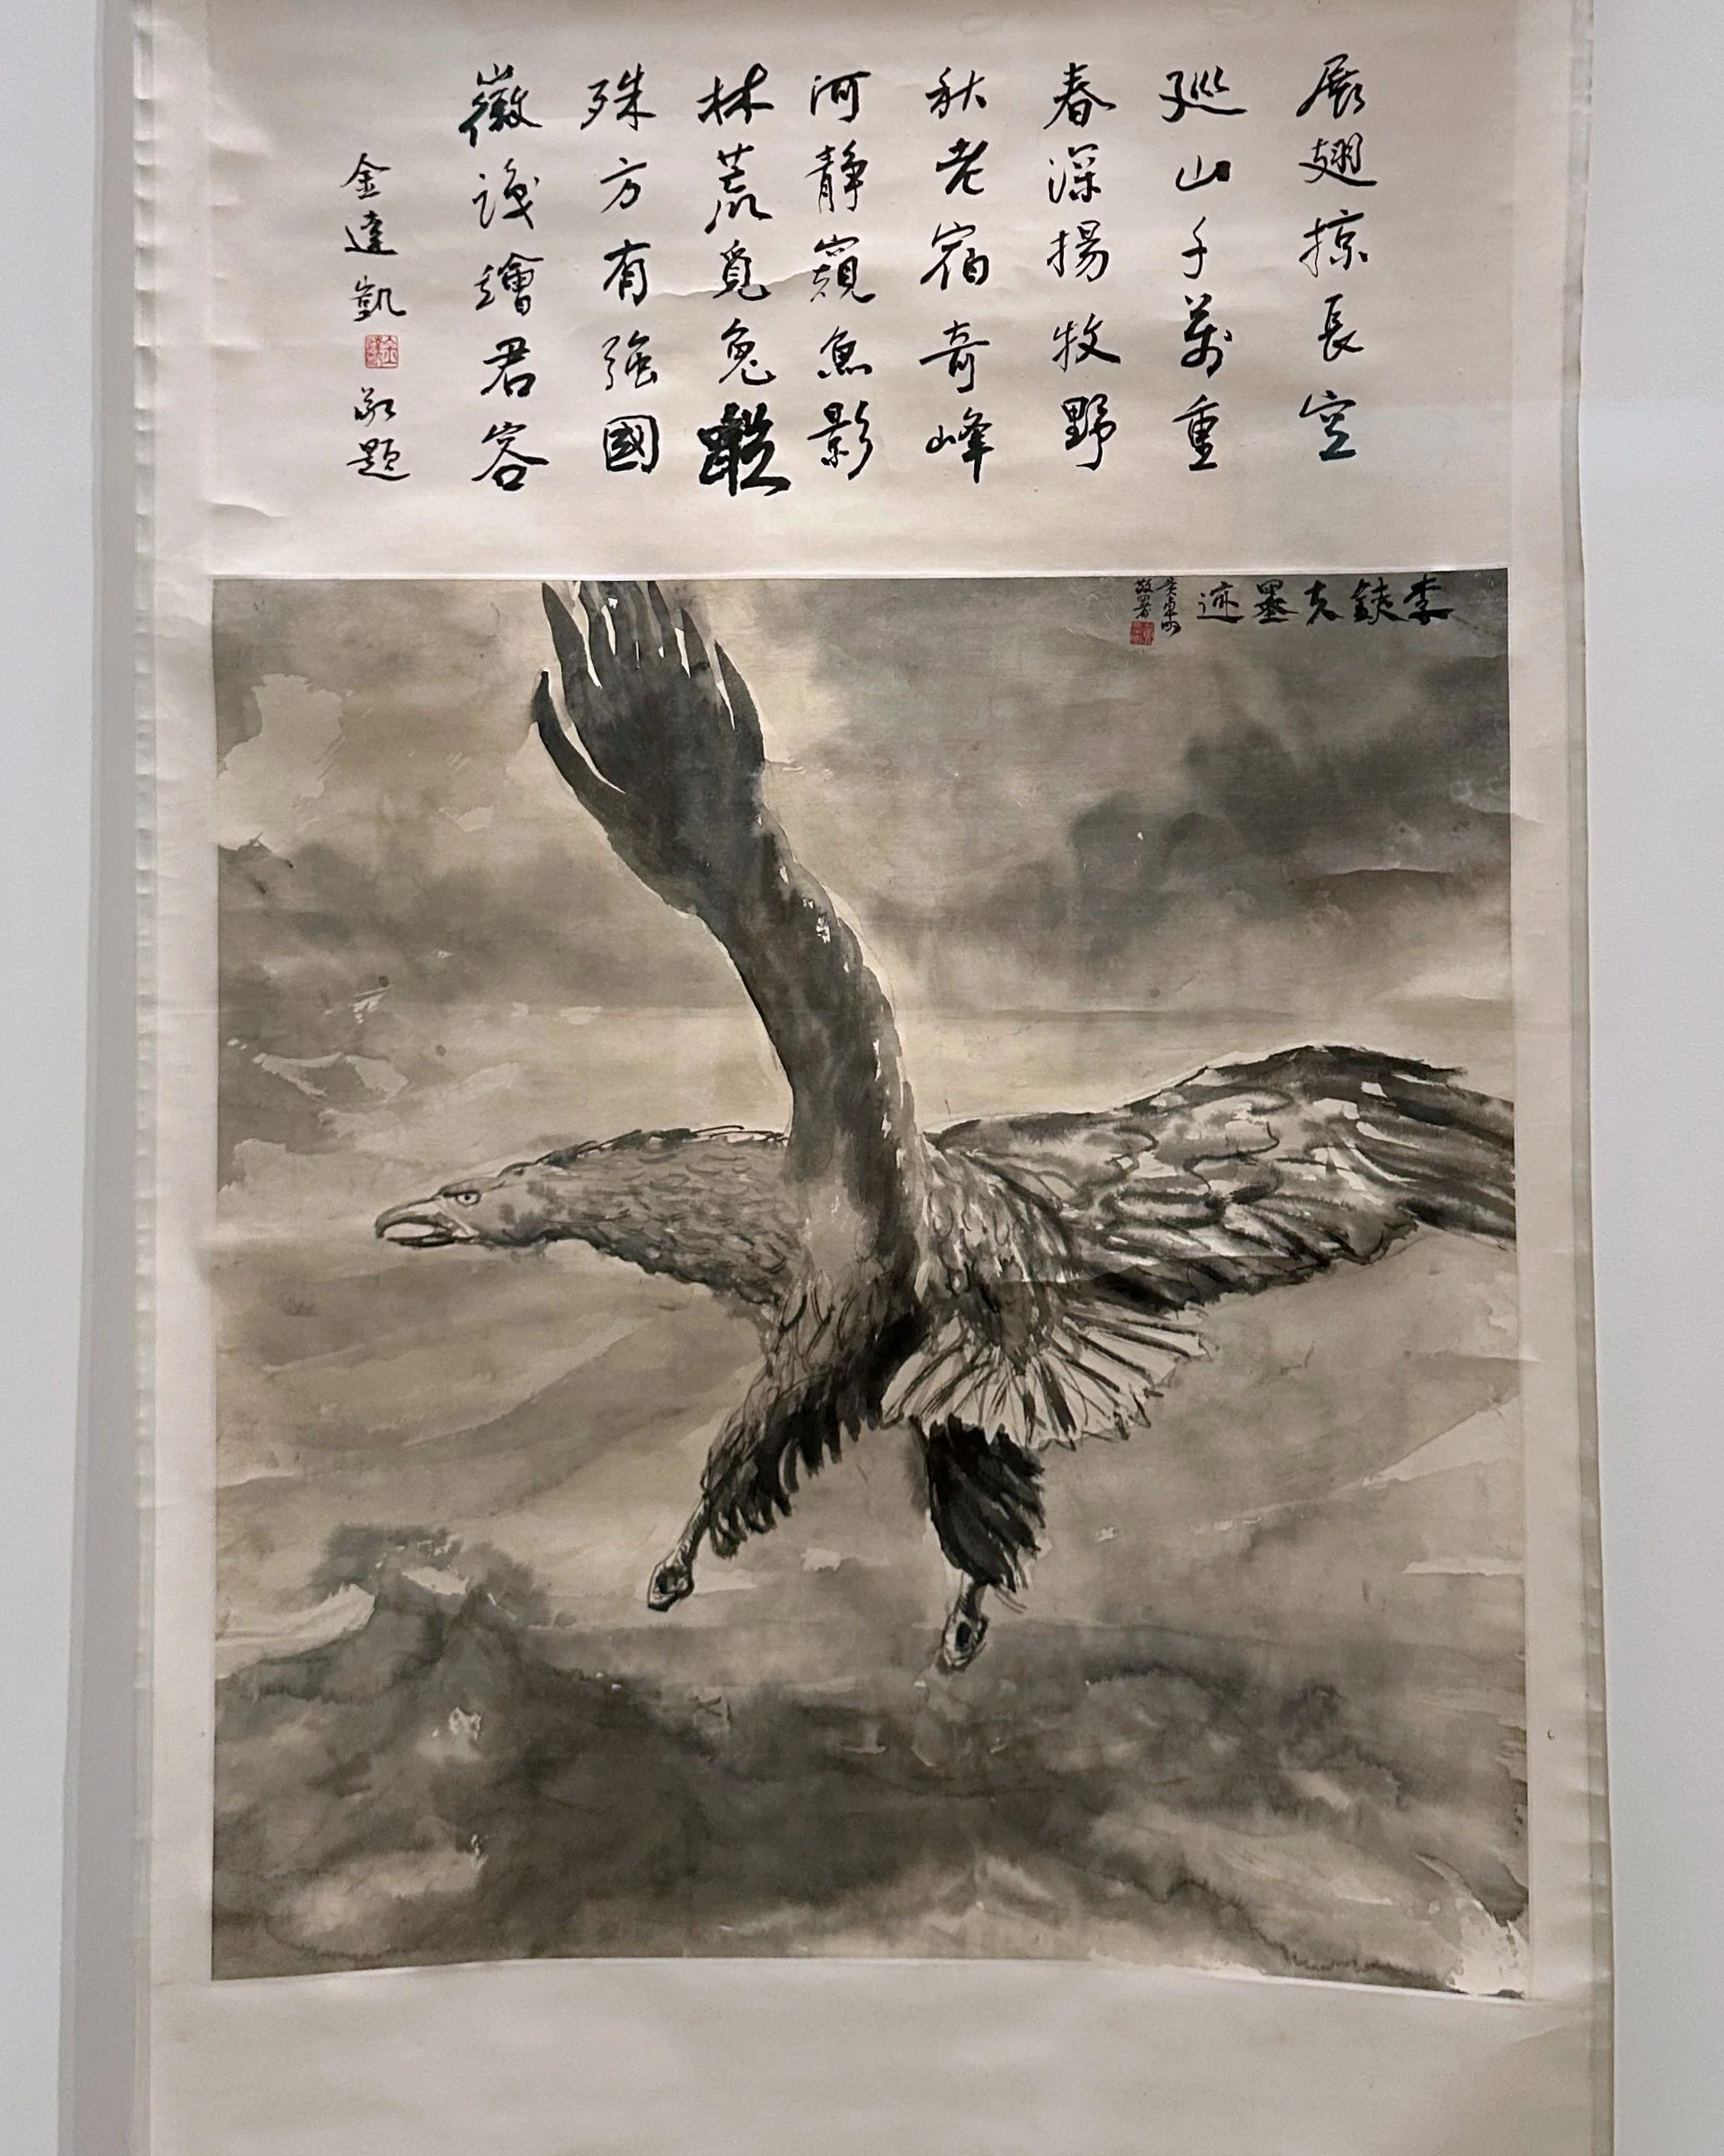 展翅掠長空
巡山千萬重
春深揚牧野
秋老宿奇峰
河靜窺魚影
林荒覓兔蹤
殊方有強國
徽識繪君容
金達凱
敬題
李鐵夫墨迹
敬署